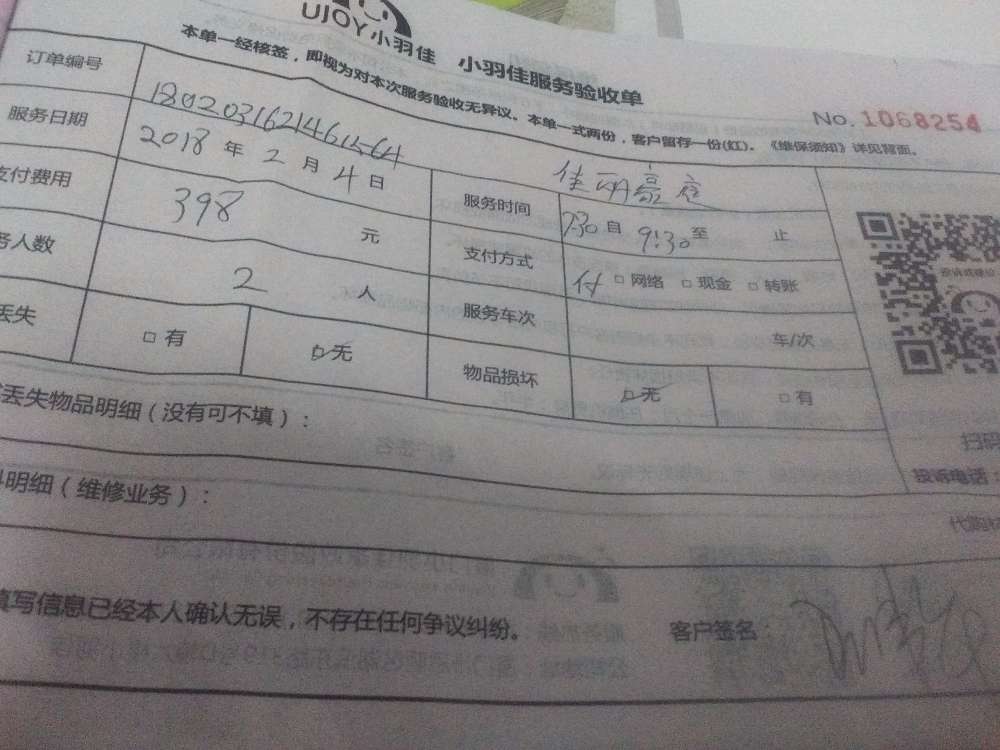 UJOY小羽佳 小羽佳服务验收单
本单一经核签，即视为对本次服务验收无异议。本单一式两份，客户留存一份(红)。《维保须知》详见背面。
No. 1068254
订单编号 1802031621461564
服务日期 2018 年 2 月 4 日 服务时间 7:30 自 9:30 至 止
支付费用 398 元 支付方式 付 □ 网络 □ 现金 □ 转账
务人数 2 人 服务车次 车/次
丢失 □ 有 □ 无 物品损坏 □ 无 □ 有
丢失物品明细（没有可不填）：
扫码
投诉电话
明细（维修业务）：
代购
填写信息已经本人确认无误，不存在任何争议纠纷。
客户签名：